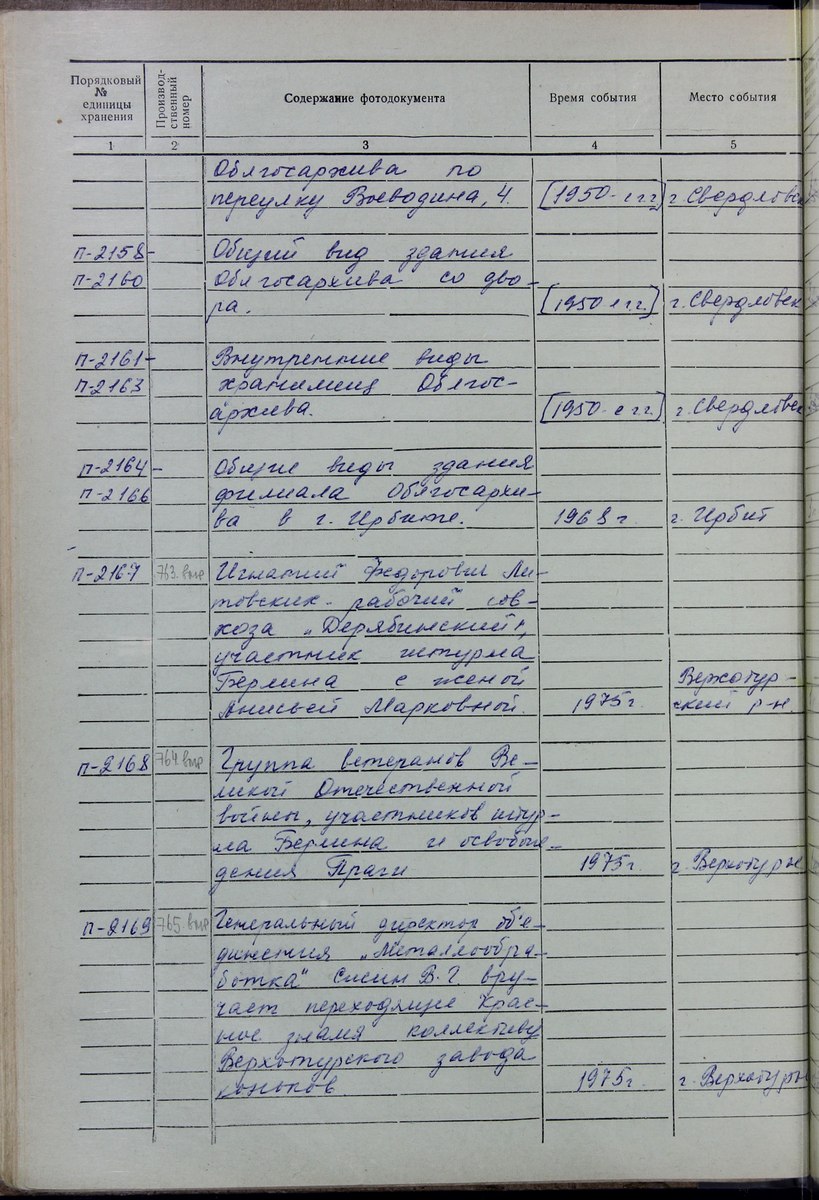 Порядковый № единицы хранения | Производ-ственный номер | Содержание фотодокумента | Время события | Место события
1 | 2 | 3 | 4 | 5
Облгосархива по
переулку Воеводина, 4. [1950-е гг] г. Свердловск
П-2158- Общий вид здания
П-2160 Облгосархива со дво-
ра. [1950 е г.г.] г. Свердловск
П-2161- Внутренние виды
П-2163 хранилищ Облгос-
архива. [1950-е гг] г. Свердловск
П-2164- Общие виды здания
П-2166 филиала Облгосархи-
ва в г. Ирбите. 1968 г г. Ирбит
П-2167 763.вкр Игнатий Федорович Ли-
товских- рабочий сов-
хоза „Дерябинский",
участник штурма
Берлина с женой Верхотур-
Анисьей Марковной. 1975г. ский р-н.
П-2168 764 вкр Группа ветеранов Ве-
ликой Отечественной
войны, участников штур-
ма Берлина и освобож-
дения Праги 1975г. г. Верхотурье
П-2169 765.вкр Генеральный директор объе-
динения „Металлообра-
ботка" Сисин В.Г. вру-
чает переходящее Крас-
ное знамя коллективу
Верхотурского завода
коньков. 1975г. г. Верхотурье